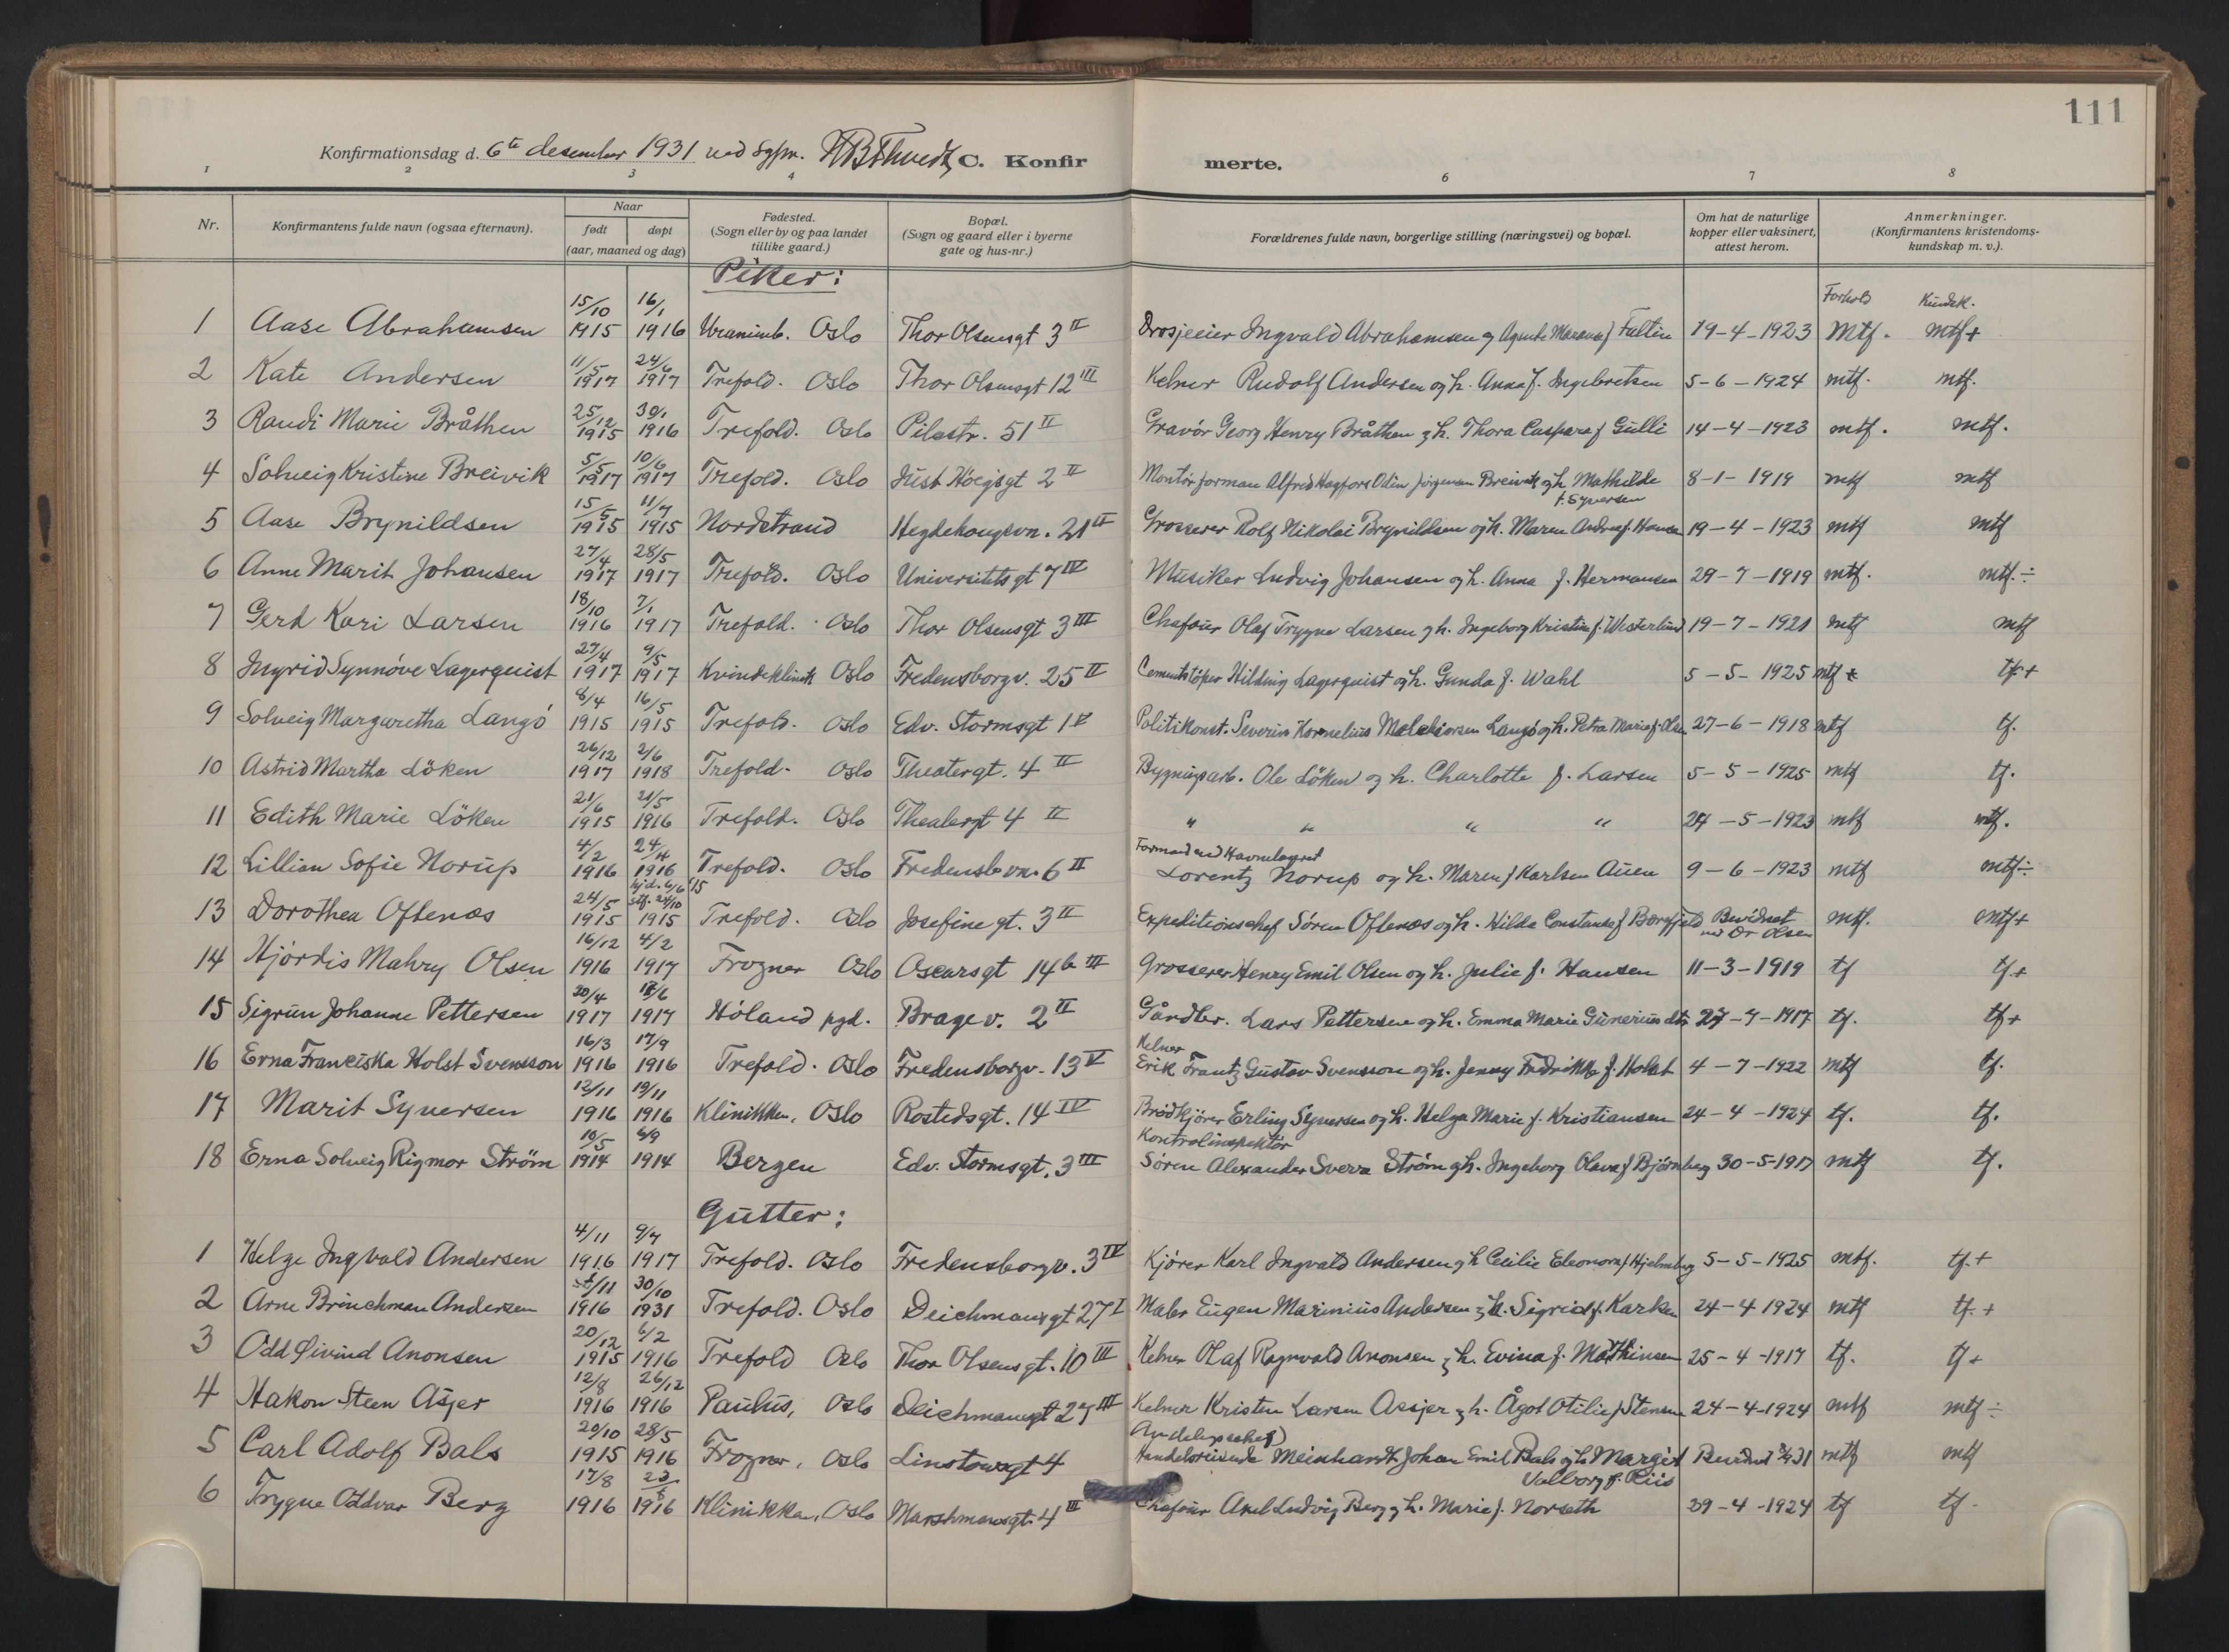 111
Konfirmationsdag d. 6te desember 1931 ved Sgpr. C. Konfirmerte.
1 2 3 4 6 7 8
Nr. Konfirmantens fulde navn (ogsaa efternavn). Naar født døpt (aar, maaned og dag) Fødested. (Sogn eller by og paa landet tillike gaard.) Bopæl. (Sogn og gaard eller i byerne gate og hus-nr.) Forældrenes fulde navn, borgerlige stilling (næringsvei) og bopæl. Om hat de naturlige kopper eller vaksinert, attest herom. Anmerkninger. (Konfirmantens kristendoms-kundskap m. v.).
Piker:
Forhold Kundsk.
1 Aase Abrahamsen 15/10 1915 16/1 1916 Uranienb. Oslo Thor Olsensgt 3 II Drosjeeier Ingvald Abrahamsen og Agnete Marane f. Faltin 19-4-1923 Mtf. mtf+
2 Kate Andersen 11/5 1917 24/6 1917 Trefold. Oslo Thor Olsensgt 12 III Kelner Rudolf Andersen og h. Anna f. Ingebretsen 5-6-1924 mtf. mtf.
3 Randi Marie Bråthen 25/12 1915 30/1 1916 Trefold. Oslo Pilestr. 51 II Gravör Georg Henry Bråthen og h. Thora Caspara f. Gulli 14-4-1923 mtf. mtf.
4 Solveig Kristine Breivik 5/5 1917 10/6 1917 Trefold. Oslo Just Höegsgt 2 II Montörforman Alfred Hagfors Odin Jörgensen Breivik og h. Mathilde f. Syversen 8-1-1919 mtf mtf
5 Aase Brynildsen 15/5 1915 11/7 1915 Nordstrand Hegdehaugsvn. 21 II Grosserer Rolf Nikolai Brynildsen og h. Maren Andrea f. Hansen 19-4-1923 mtf mtf
6 Anne Marit Johansen 27/4 1917 28/5 1917 Trefold. Oslo Universitetsgt 7 IV Musiker Ludvig Johansen og h. Anna f. Hermansen 29-7-1919 mtf. mtf.÷
7 Gerd Kari Larsen 18/10 1916 7/1 1917 Trefold. Oslo Thor Olsensgt 3 III Chaföur Olaf Trygve Larsen og h. Ingeborg Kristine f. Westerlund 19-7-1921 mtf mtf
8 Ingrid Synnöve Lagerquist 27/4 1917 9/5 1917 Kvindeklinik Oslo Fredensborgv. 25 II Cementstöper Hilding Lagerquist og h. Gunda f. Wahl 5-5-1925 mtf+ tf+
9 Solveig Margaretha Langö 8/4 1915 16/5 1915 Trefold. Oslo Edv. Stormsgt 1 V Politikonst. Severin Kornelius Melchiorsen Langö og h. Petra Marie f. Olsen 27-6-1918 mtf tf.
10 Astrid Martha Löken 26/12 1917 2/6 1918 Trefold. Oslo Theatergt. 4 II Bygningsarb. Ole Löken og h. Charlotte f. Larsen 5-5-1925 mtf tf.
11 Edith Marie Löken 21/6 1915 21/5 1916 Trefold. Oslo Theatergt 4 II " " " " 24-5-1923 mtf mtf.
12 Lillian Sofie Norup 4/2 1916 24/4 1916 Trefold. Oslo Fredensb vn. 6 II Formand ved Havnelageret Lorentz Norup og h. Maren f. Karlsen Auen 9-6-1923 mtf mtf÷
13 Dorothea Oftenæs 24/5 1915 hjd. 6/6 '15 stf. 24/10 1915 Trefold. Oslo Josefinegt. 3 II Expeditionschef Sören Oftenæs og h. Hilda Constanse f. Borgfjeld Bevidnet ved Dr Olsen mtf. mtf+
14 Hjördis Mahry Olsen 16/12 1916 4/2 1917 Frogner Oslo Oscarsgt 14b III Grosserer Henry Emil Olsen og h. Julie f. Hansen 11-3-1919 tf tf+
15 Sigrun Johanne Pettersen 20/4 1917 17/6 1917 Höland pgd. Bragev. 2 II Gårdbr. Lars Pettersen og h. Emma Marie Gunerius dtr 27-7-1917 tf. tf+
16 Erna Franciska Holst Svensson 16/3 1916 17/9 1916 Trefold. Oslo Fredensborgv. 13 V Kelner Erik Frantz Gustav Svensson og h. Jenny Fredrikke f. Holst 4-7-1922 mtf tf.
17 Marit Syversen 12/11 1916 19/11 1916 Klinikken, Oslo Rostedsgt. 14 IV Brödkjörer Erling Syversen og h. Helga Marie f. Kristiansen 24-4-1924 tf. tf.
18 Erna Solveig Rigmor Ström 10/5 1914 6/9 1914 Bergen Edv. Stormsgt. 3 III Kontrolinspektör Sören Alexander Svera Ström og h. Ingeborg Olava f. Björnberg 30-5-1917 mtf tf.
Gutter:
1 Helge Ingvald Andersen 4/11 1916 9/4 1917 Trefold. Oslo Fredensborgv. 3 IV Kjörer Karl Ingvald Andersen og h Cecilie Eleonora f. Hjelmberg 5-5-1925 mtf. tf.+
2 Arne Brinchman Andersen /11 1916 30/10 1931 Trefold. Oslo Deichmansgt 27 I Maler Eugen Marinius Andersen og h. Sigrid f. Karlsen 24-4 1924 mtf tf.+
3 Odd Øivind Aronsen 20/12 1915 6/2 1916 Trefold Oslo Thor Olsensgt. 10 III Kelner Olaf Ragnvald Aronsen og h. Evina f. Mathinsen 25-4-1917 tf. tf+
4 Hakon Steen Asjer 12/8 1916 26/12 1916 Paulus, Oslo Deichmansgt 27 III Kelner Kristen Larsen Assjer og h. Ågot Otilie f. Stensen 24-4-1924 mtf mtf÷
5 Carl Adolf Bals 20/10 1915 28/5 1916 Frogner, Oslo Linstowsgt 4 (Avdelingschef) Handelsreisende Meinhardt Johan Emil Bals og h Margit Valborg f. Riis Bevidnet 31 mtf mtf
6 Trygve Oddvar Berg 17/8 1916 23/ 1916 Klinikken, Oslo Marshmansgt. 4 III Chaföur Axel Ludvig Berg og h. Marie f. Norseth 29-4-1924 tf tf-